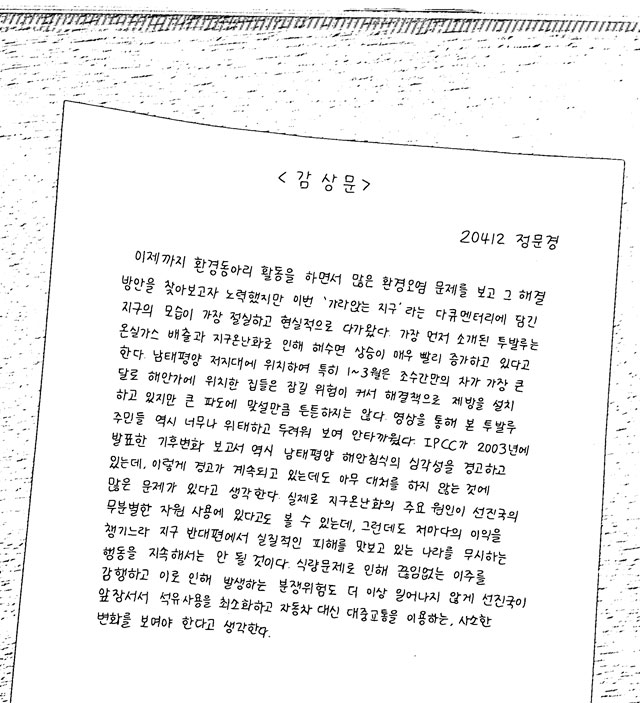 <감상문>
20412 정문경
이제까지 환경동아리 활동을 하면서 많은 환경오염 문제를 보고 그 해결
방안을 찾아보고자 노력했지만 이번 '가라앉는 지구'라는 다큐멘터리에 담긴
지구의 모습이 가장 절실하고 현실적으로 다가왔다. 가장 먼저 소개된 투발루는
온실가스 배출과 지구온난화로 인해 해수면 상승이 매우 빨리 증가하고 있다고
한다. 남태평양 저지대에 위치하여 특히 1~3월은 조수간만의 차가 가장 큰
달로 해안가에 위치한 집들은 잠길 위험이 커서 해결책으로 제방을 설치
하고 있지만 큰 파도에 맞설만큼 튼튼하지는 않다. 영상을 통해 본 투발루
주민들 역시 너무나 위태하고 두려워 보여 안타까웠다. IPCC가 2003년에
발표한 기후변화 보고서 역시 남태평양 해안침식의 심각성을 경고하고
있는데, 이렇게 경고가 계속되고 있는데도 아무 대처를 하지 않는 것에
많은 문제가 있다고 생각한다. 실제로 지구온난화의 주요 원인이 선진국의
무분별한 자원 사용에 있다고도 볼 수 있는데, 그런데도 저마다의 이익을
챙기느라 지구 반대편에서 실질적인 피해를 맛보고 있는 나라를 무시하는
행동을 지속해서는 안 될 것이다. 식량문제로 인해 끊임없는 이주를
감행하고 이로 인해 발생하는 분쟁위험도 더 이상 일어나지 않게 선진국이
앞장서서 석유사용을 최소화하고 자동차 대신 대중교통을 이용하는, 사소한
변화를 보여야 한다고 생각한다.